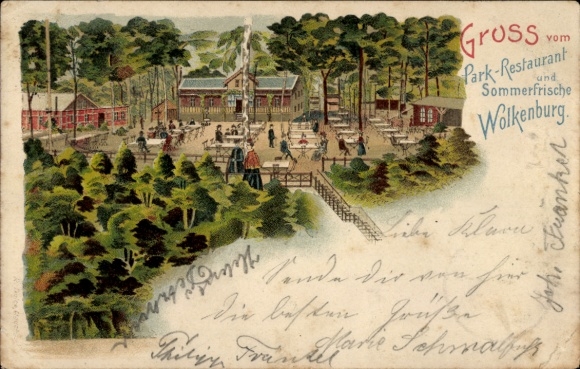 Gruss vom
Park-Restaurant
und
Sommerfrische
Wolkenburg.
Liebe Klara
Sende dir von hier
die besten Grüße
Marie
Philipp Fränkel
Fränkel